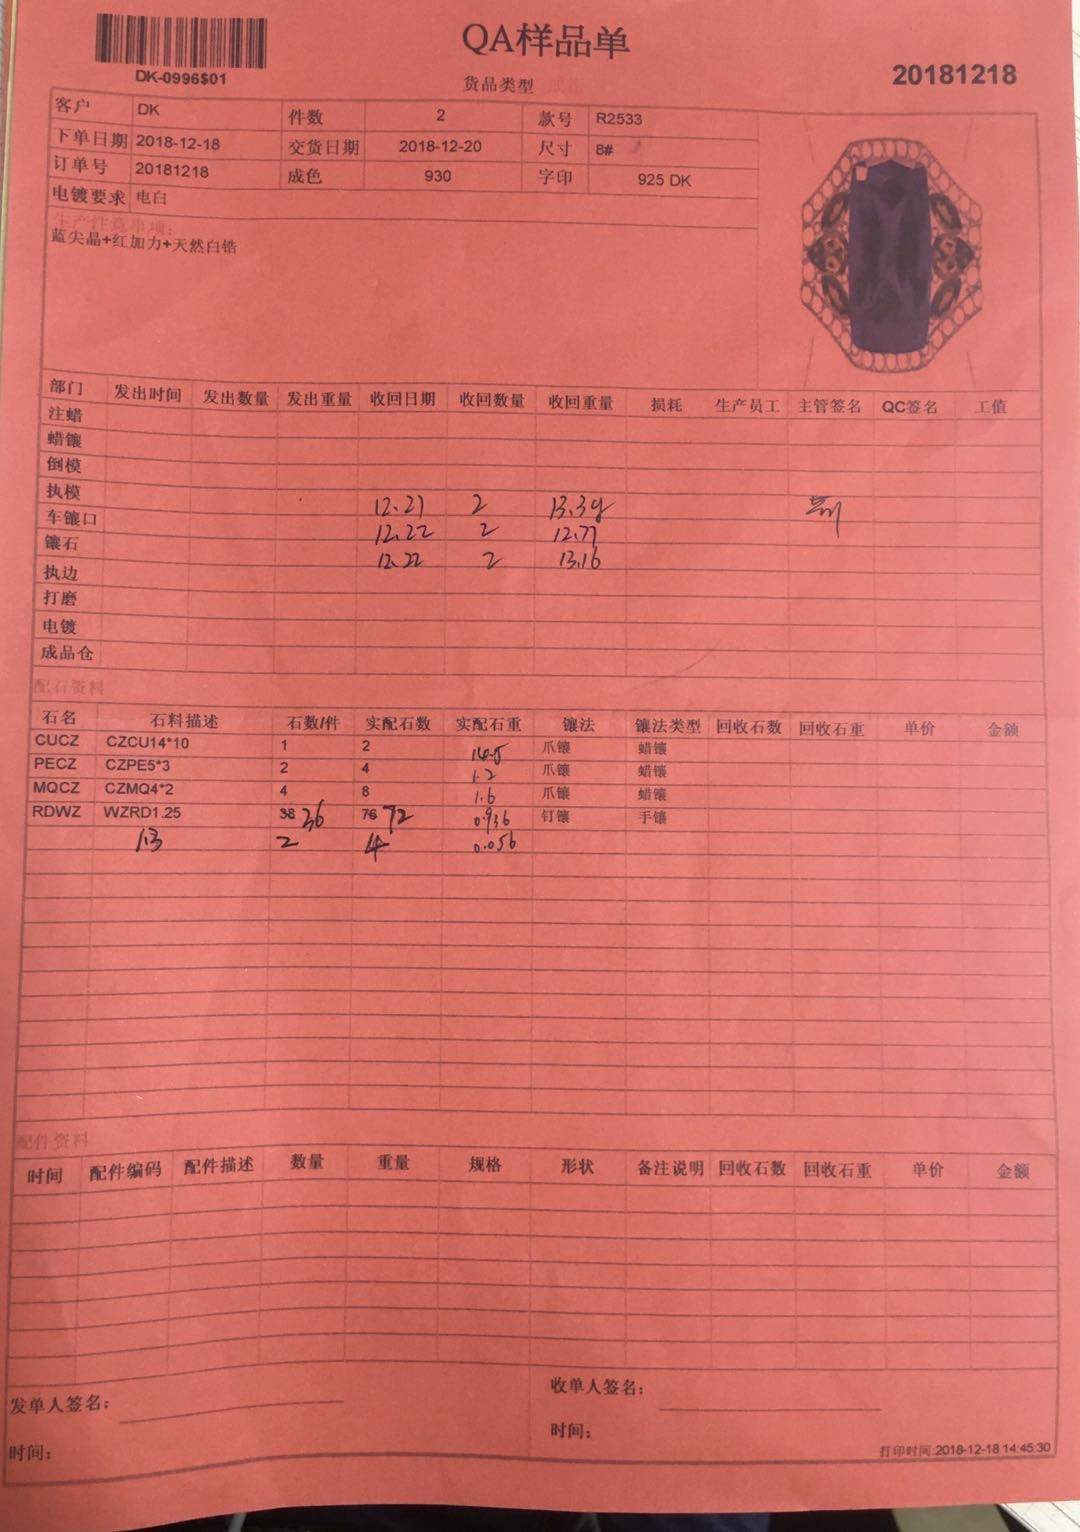 QA样品单
DK-0996$01
货品类型
20181218
客户 DK 件数 2 款号 R2533
下单日期 2018-12-18 交货日期 2018-12-20 尺寸 8#
订单号 20181218 成色 930 字印 925 DK
电镀要求 电白
生产注意事项:
蓝尖晶+红加力+天然白锆
部门 发出时间 发出数量 发出重量 收回日期 收回数量 收回重量 损耗 生产员工 主管签名 QC签名 工值
注蜡
蜡镶
倒模
执模 12.21 2
车镶口 12.22 2 12.77
镶石 12.22 2 13.16
执边
打磨
电镀
成品仓
配石资料
石名 石料描述 石数/件 实配石数 实配石重 镶法 镶法类型 回收石数 回收石重 单价 金额
CUCZ CZCU14*10 1 2 14.5 爪镶 蜡镶
PECZ CZPE5*3 2 4 1.2 爪镶 蜡镶
MQCZ CZMQ4*2 4 8 1.6 爪镶 蜡镶
RDWZ WZRD1.25 38 36 76 72 0.936 钉镶 手镶
1.3 2 4 0.056
配件资料
时间 配件编码 配件描述 数量 重量 规格 形状 备注说明 回收石数 回收石重 单价 金额
发单人签名: 收单人签名:
时间: 时间:
打印时间:2018-12-18 14:45:30